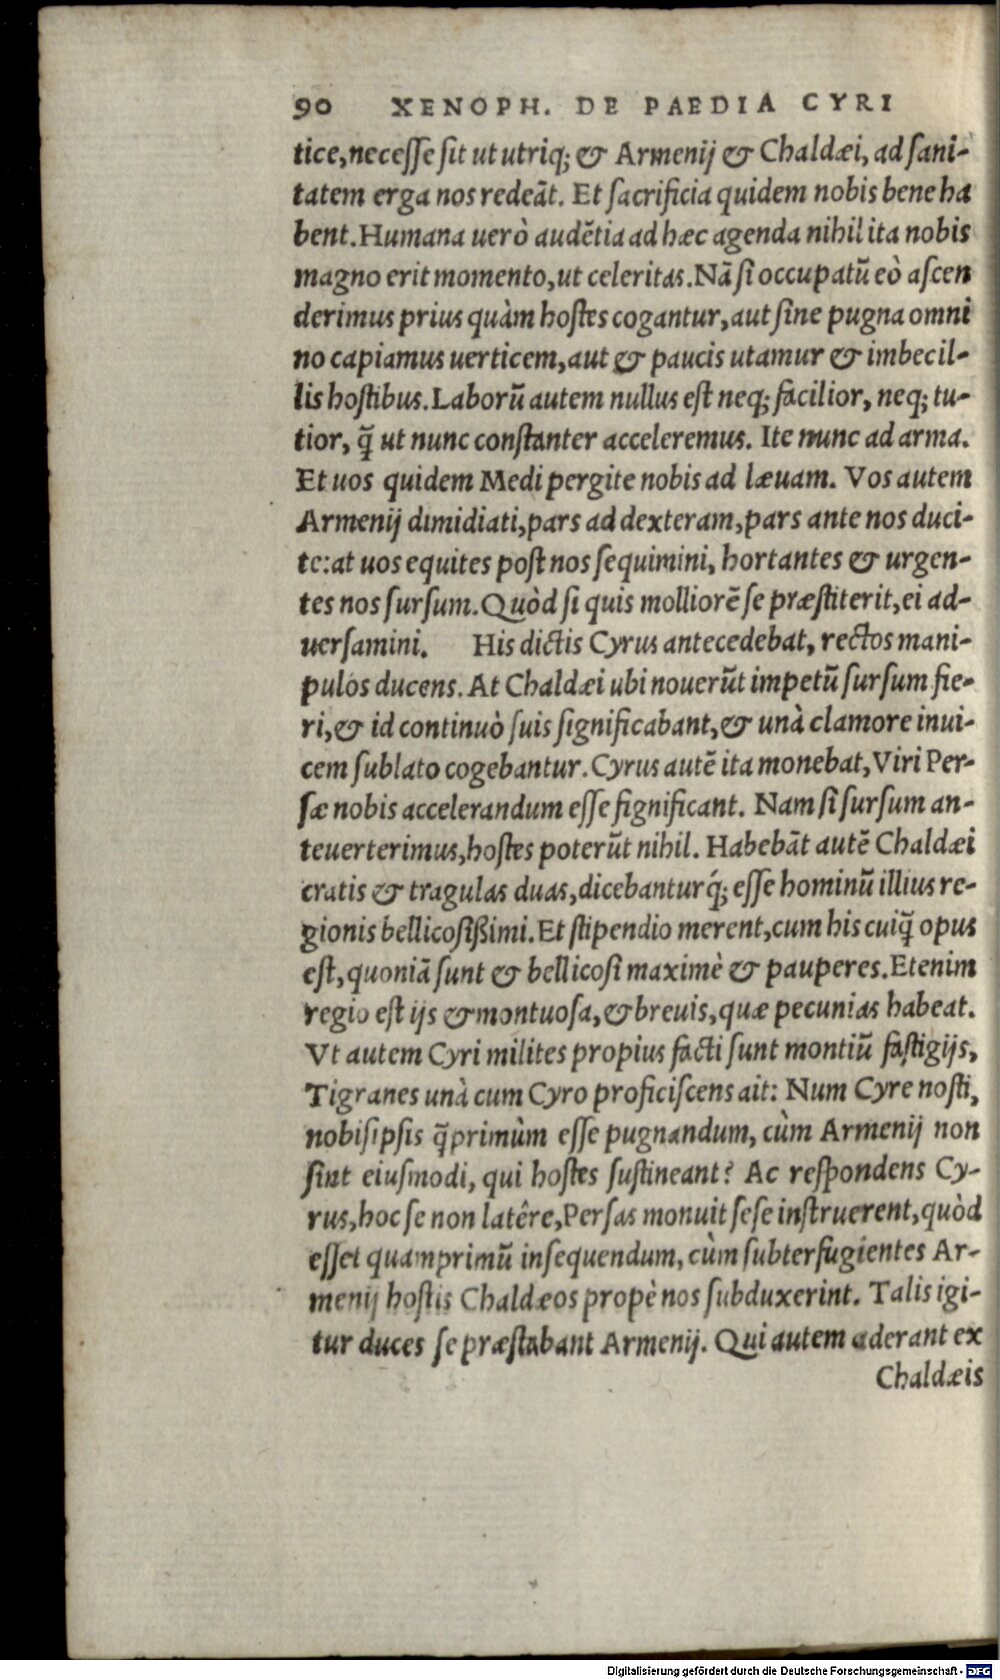 90 XENOPH. DE PAEDIA CYRI
tice, necesse sit ut utriq; & Armenij & Chaldæi, ad sani-
tatem erga nos redeāt. Et sacrificia quidem nobis bene ha
bent. Humana uerò audētia ad hæc agenda nihil ita nobis
magno erit momento, ut celeritas. Nā si occupatū eò ascen
derimus prius quàm hostes cogantur, aut sine pugna omni
no capiamus uerticem, aut & paucis utamur & imbecil-
lis hostibus. Laborū autem nullus est neq; facilior, neq; tu-
tior, q̃ ut nunc constanter acceleremus. Ite nunc ad arma.
Et uos quidem Medi pergite nobis ad læuam. Vos autem
Armenij dimidiati, pars ad dexteram, pars ante nos duci-
te: at uos equites post nos sequimini, hortantes & urgen-
tes nos sursum. Quòd si quis molliorē se præstiterit, ei ad-
uersamini. His dictis Cyrus antecedebat, rectos mani-
pulos ducens. At Chaldæi ubi nouerūt impetū sursum fie-
ri, & id continuò suis significabant, & unà clamore inui-
cem sublato cogebantur. Cyrus autē ita monebat, Viri Per-
sæ nobis accelerandum esse significant. Nam si sursum an-
teuerterimus, hostes poterūt nihil. Habebāt autē Chaldæi
cratis & tragulas duas, dicebanturq́; esse hominū illius re-
gionis bellicosißimi. Et stipendio merent, cum his cuiq̃ opus
est, quoniā sunt & bellicosi maximè & pauperes. Etenim
regio est ijs & montuosa, & breuis, quæ pecunias habeat.
Vt autem Cyri milites propius facti sunt montiū fastigijs,
Tigranes unà cum Cyro proficiscens ait: Num Cyre nosti,
nobisipsis q̃primùm esse pugnandum, cùm Armenij non
sint eiusmodi, qui hostes sustineant? Ac respondens Cy-
rus, hoc se non latêre, Persas monuit sese instruerent, quòd
esset quamprimū insequendum, cùm subterfugientes Ar-
menij hostis Chaldæos propè nos subduxerint. Talis igi-
tur duces se præstabant Armenij. Qui autem aderant ex
Chaldæis
Digitalisierung gefördert durch die Deutsche Forschungsgemeinschaft - DFG